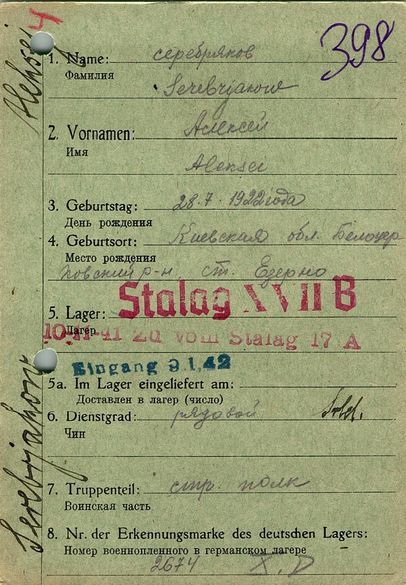 398
4
1. Name: серебряков
Фамилия
Serebrjakow
2. Vornamen: Алексей
Имя
Aleksei
3. Geburtstag: 28.7.1922 года
День рождения
4. Geburtsort: Киевская обл. Белоцер
Место рождения
ковский р-н ст. Езерно
Stalag XVII B
5. Lager:
Лагерь
10-11-41 Zu vom Stalag 17 A
Eingang 9.1.42
5a. Im Lager eingeliefert am:
Доставлен в лагер (число)
6. Dienstgrad: рядовой Sold.
Чин
7. Truppenteil: стр. полк
Воинская часть
8. Nr. der Erkennungsmarke des deutschen Lagers:
Номер военнопленного в германском лагере
2674
Serebrjakow